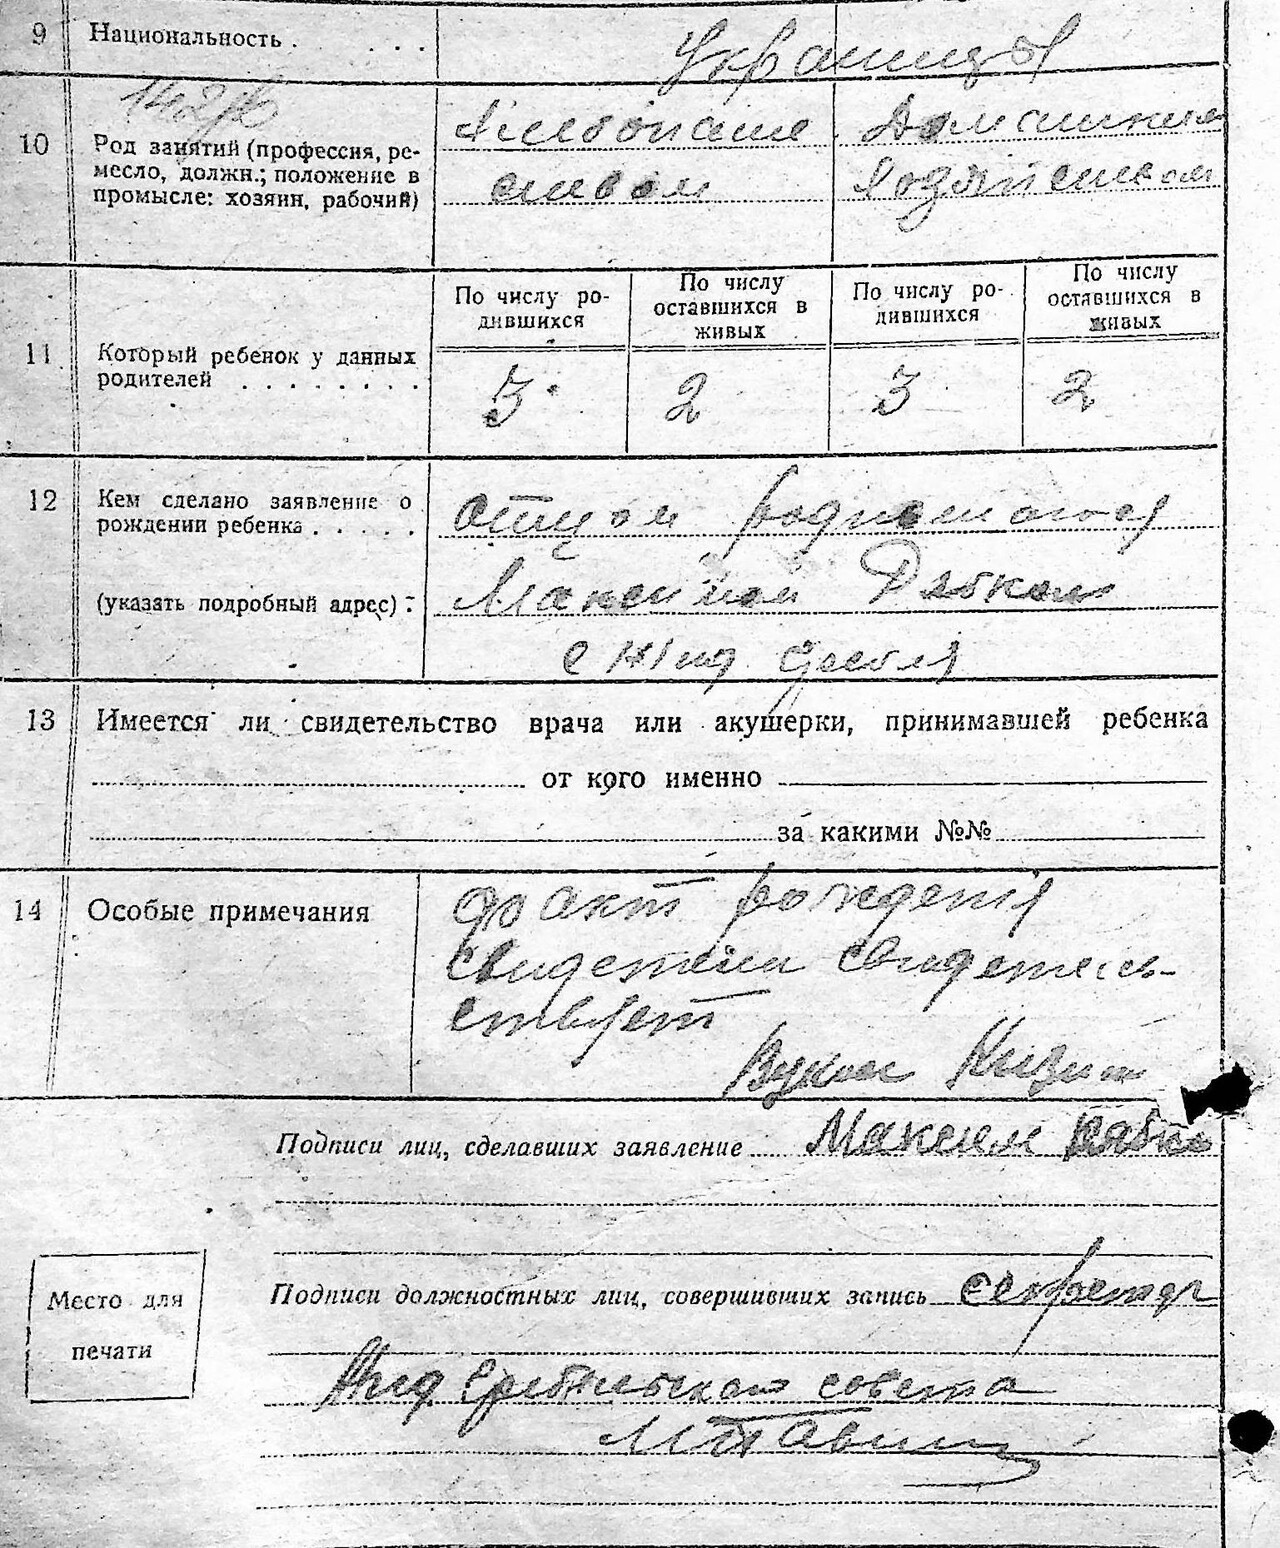 9 Национальность . . . . Украинцы
10 Род занятий (профессия, ре-
месло, должн.; положение в
промысле: хозяин, рабочий)
Хлебопаше
ством
Домашним
Хозяйством
11 Который ребенок у данных
родителей . . . . . . . .
По числу ро-
дившихся
По числу
оставшихся в
живых
По числу ро-
дившихся
По числу
оставшихся в
живых
3 2 3 2
12 Кем сделано заявление о
рождении ребенка . . . . .
(указать подробный адрес) :
отцом родившогося
Максимом Рябком
с
13 Имеется ли свидетельство врача или акушерки, принимавшей ребенка
от кого именно
за какими №№
14 Особые примечания
факт рождения
свидетели свидетель-
ствует
Подписи лиц, сделавших заявление Максим Рябко
Подписи должностных лиц, совершивших запись секретар
совета
Место для
печати